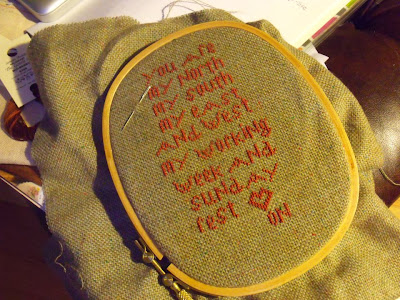 you are
my North
my south
my east
and west
my working
week and
sunday
rest